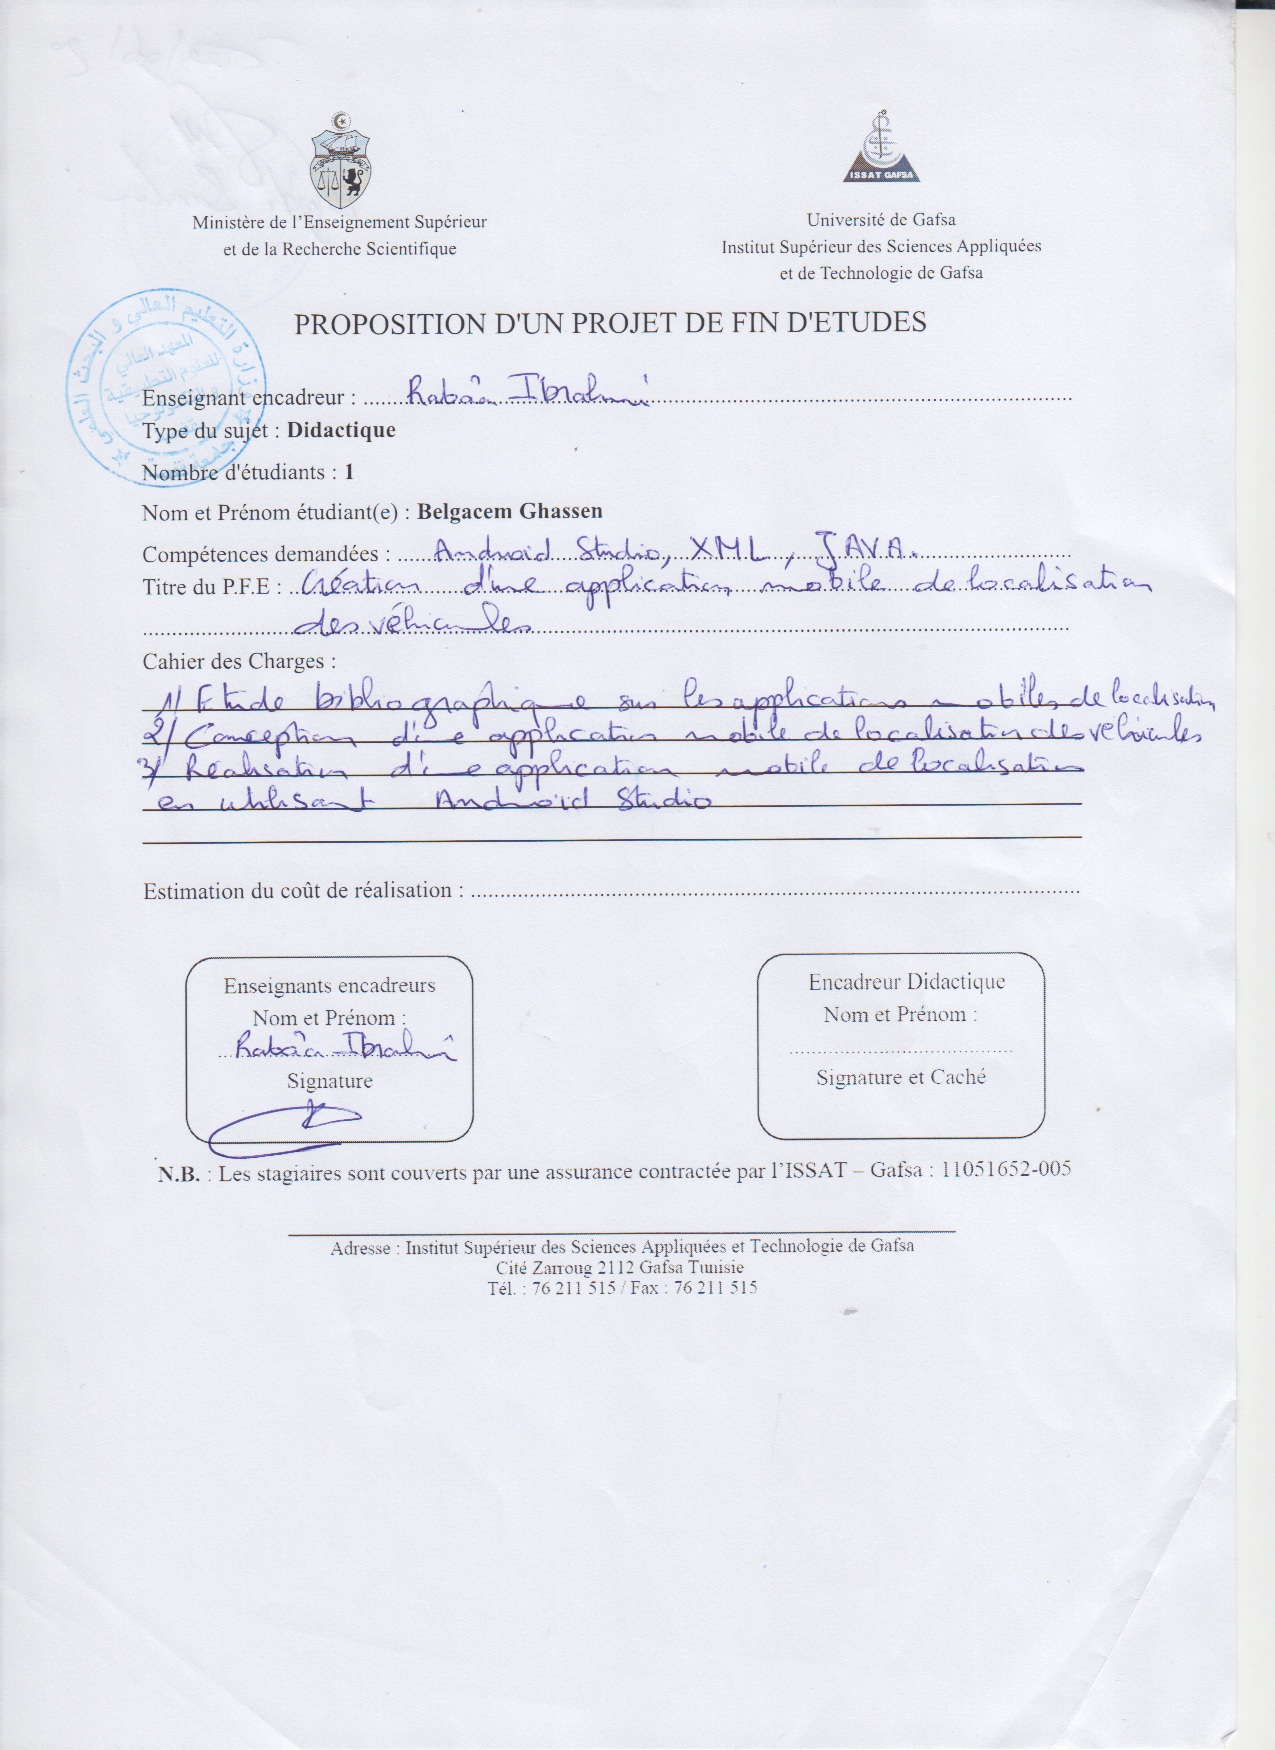 ISSAT GAFSA
Ministère de l'Enseignement Supérieur
et de la Recherche Scientifique
Université de Gafsa
Institut Supérieur des Sciences Appliquées
et de Technologie de Gafsa
وزارة التعليم العالي و البحث العلمي
المعهد العالي
للعلوم التطبيقية
و التكنولوجيا
بقفصة
جامعة قفصة
PROPOSITION D'UN PROJET DE FIN D'ETUDES
Enseignant encadreur : Rabâa Ibrahmi
Type du sujet : Didactique
Nombre d'étudiants : 1
Nom et Prénom étudiant(e) : Belgacem Ghassen
Compétences demandées : Android Studio, XML, JAVA.
Titre du P.F.E : Création d'une application mobile de localisation
des véhicules
Cahier des Charges :
1/ Etude bibliographique sur les applications mobiles de localisation
2/ Conception d'une application mobile de localisation des véhicules
3/ Réalisation d'une application mobile de localisation
en utilisant Android Studio
Estimation du coût de réalisation :
Enseignants encadreurs
Nom et Prénom :
Rabâa Ibrahmi
Signature
Encadreur Didactique
Nom et Prénom :
Signature et Caché
N.B. : Les stagiaires sont couverts par une assurance contractée par l'ISSAT – Gafsa : 11051652-005
Adresse : Institut Supérieur des Sciences Appliquées et Technologie de Gafsa
Cité Zarroug 2112 Gafsa Tunisie
Tél. : 76 211 515 / Fax : 76 211 515